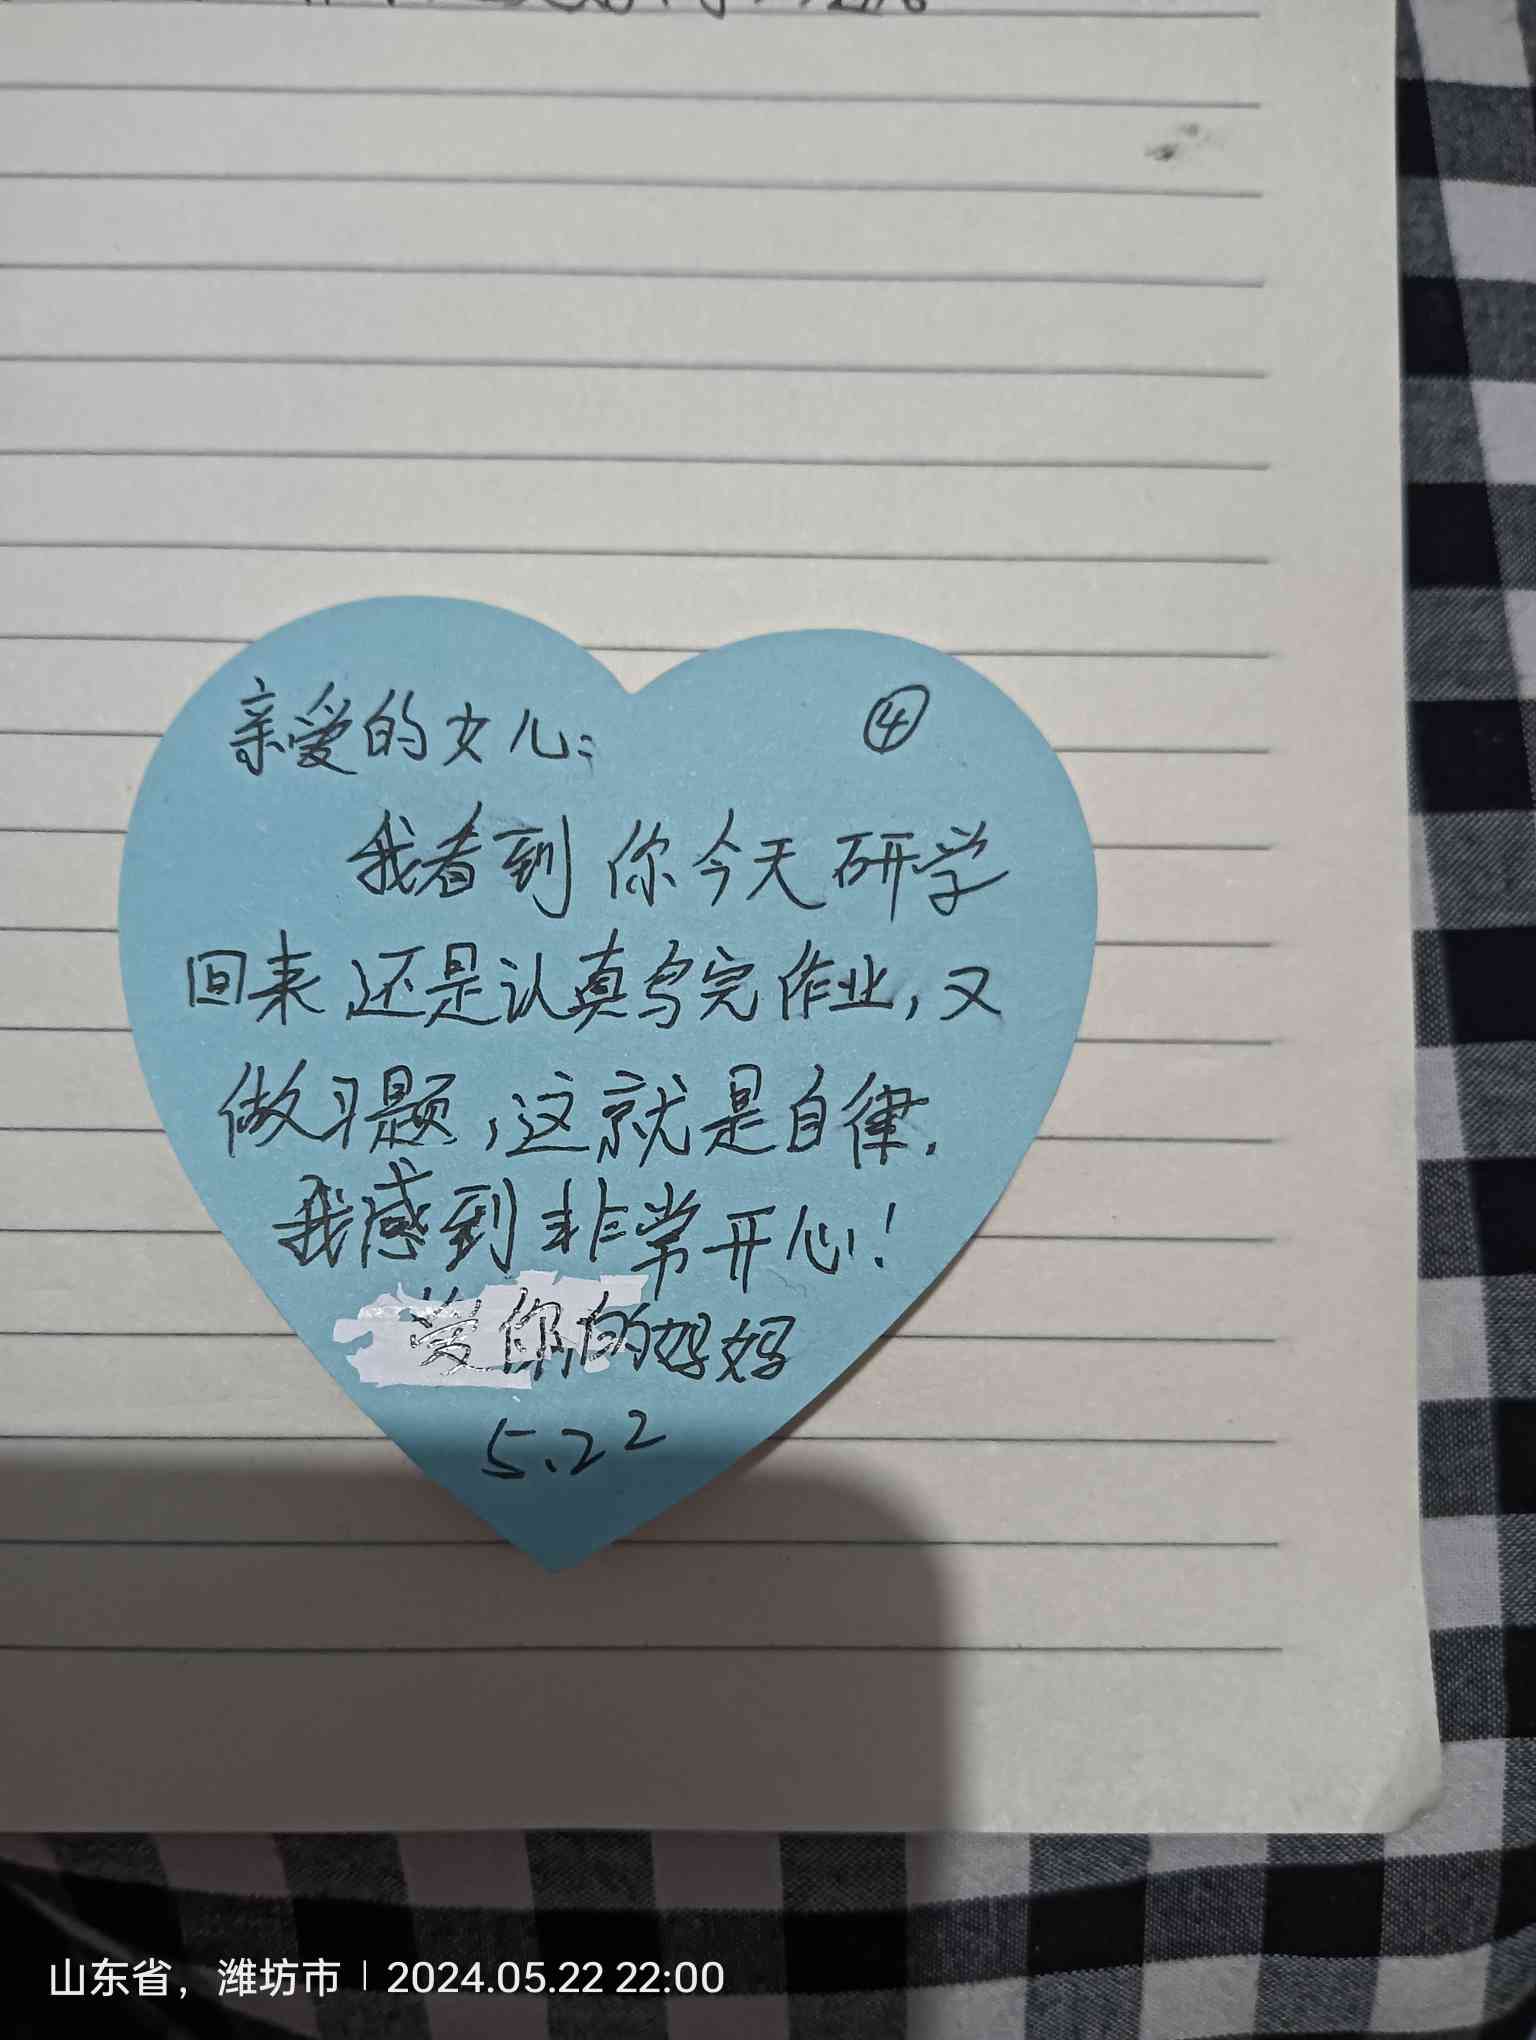 亲爱的女儿： ④
我看到你今天研学
回来还是认真写完作业，又
做习题，这就是自律，
我感到非常开心！
爱你的妈妈
5.22
山东省，潍坊市 | 2024.05.22 22:00